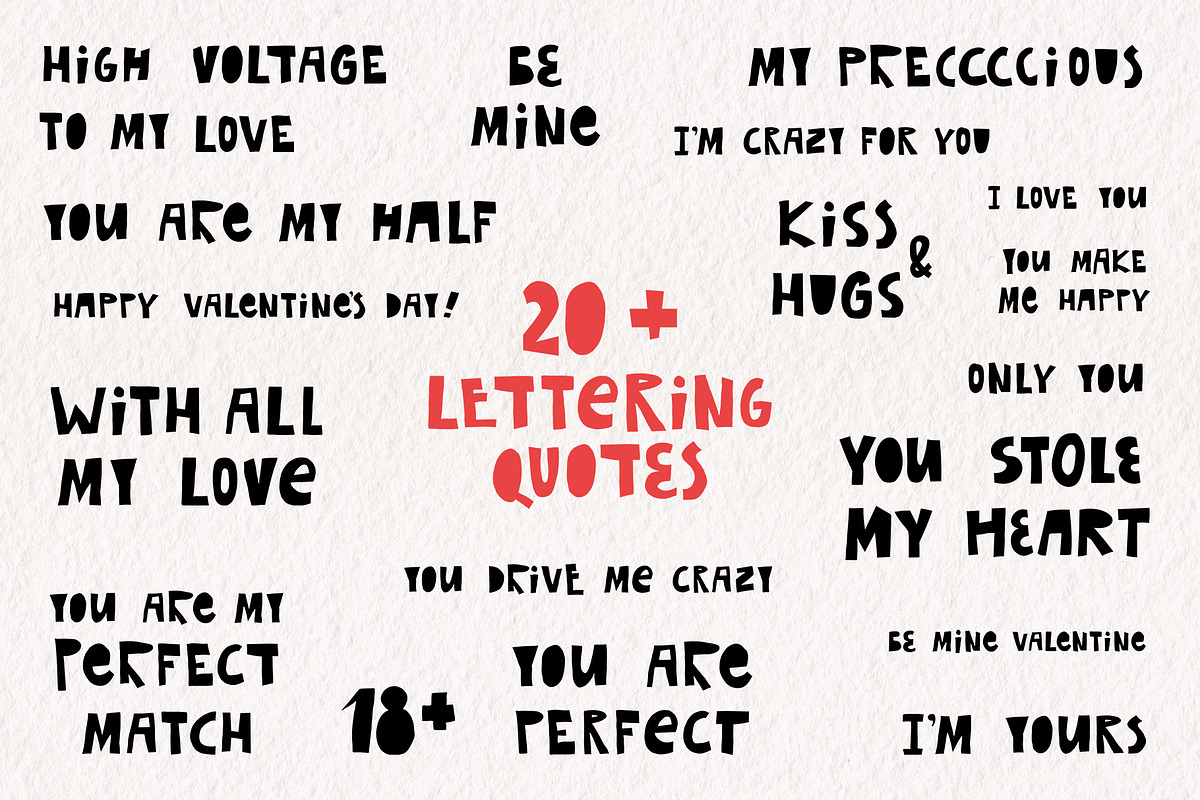 HiGH VOLTAGE
TO MY LOVE
BE
MiNe
MY PRECCCCiOUS
I'M CRAZY FOR YOU
YOU ARe MY HALF
KiSS
&
HUGS
I LOVE YOU
YOU MAKE
Me HAPPY
HAPPY VALeNTiNe'S DAY!
20 +
LETTeRiNG
QUOTES
ONLY YOU
WiTH ALL
MY LOVe
YOU STOLE
MY HEART
YOU DRiVE Me CRAZY
YOU ARe MY
PeRFECT
MATCH
18+
YOU ARe
PERFeCT
BE MiNe VALENTiNE
I'M YOURS